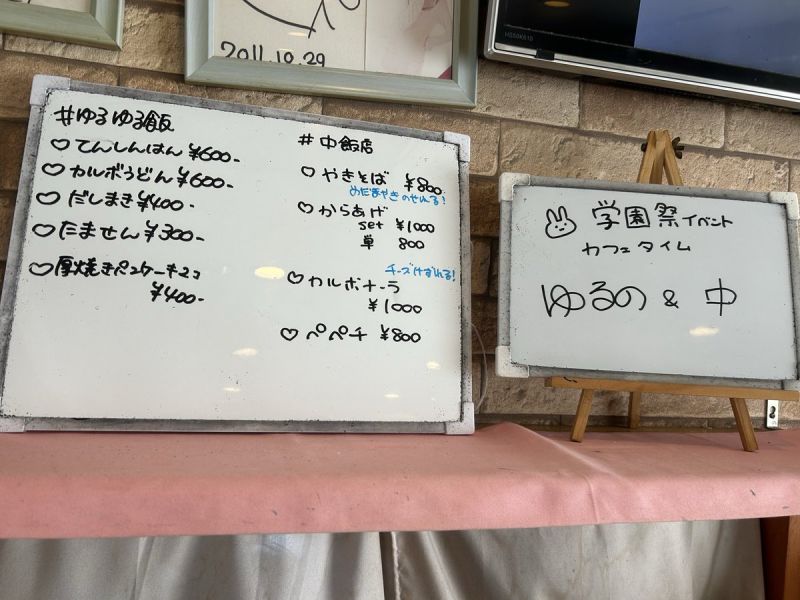 2011.10.29
HS50K610
#ゆるゆる飯
♡てんしんはん ¥600-
♡カルボうどん ¥600-
♡だしまき ¥400-
♡たません ¥300-
♡厚焼きパンケーキ2コ
¥400-
#中飯店
♡やきそば ¥800
めだまやきのせれる!
♡からあげ
set ¥1000
単 800
チーズけずれる!
♡カルボナーラ
¥1000
♡ペペチ ¥800
学園祭イベント
カフェタイム
ゆるの & 中